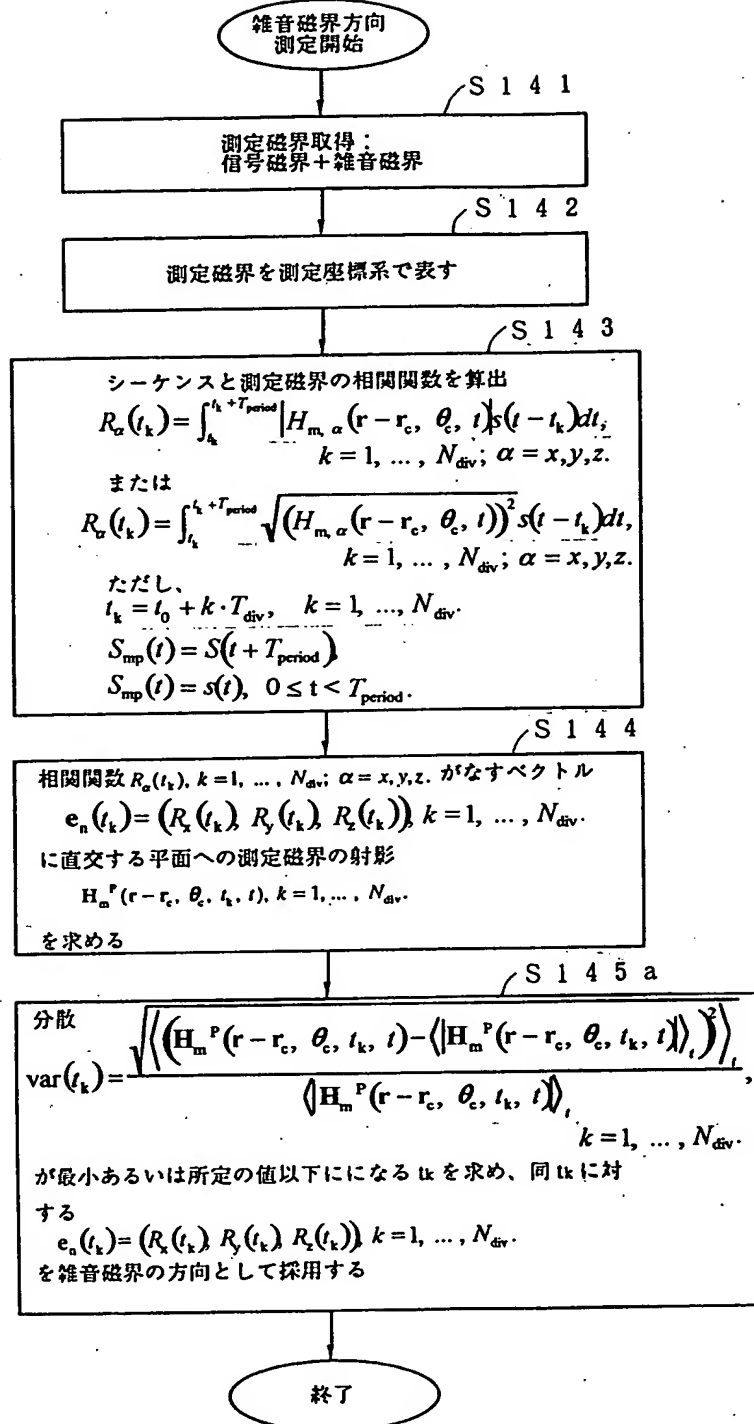 雑音磁界方向
測定開始
S 1 4 1
測定磁界取得：
信号磁界＋雑音磁界
S 1 4 2
測定磁界を測定座標系で表す
S 1 4 3
シーケンスと測定磁界の相関関数を算出
R_α(t_k) = ∫_{t_k}^{t_k+T_period} |H_{m, α}(r − r_c, θ_c, t)|s(t − t_k)dt,
k = 1, ... , N_div; α = x,y,z.
または
R_α(t_k) = ∫_{t_k}^{t_k+T_period} √((H_{m, α}(r − r_c, θ_c, t))²) s(t − t_k)dt,
k = 1, ... , N_div; α = x,y,z.
ただし、
t_k = t_0 + k · T_div, k = 1, ..., N_div.
S_mp(t) = S(t + T_period),
S_mp(t) = s(t), 0 ≤ t < T_period.
S 1 4 4
相関関数 R_α(t_k), k = 1, ... , N_div; α = x,y,z. がなすベクトル
e_n(t_k) = (R_x(t_k), R_y(t_k), R_z(t_k)), k = 1, ... , N_div.
に直交する平面への測定磁界の射影
H_m^P(r − r_c, θ_c, t_k, t), k = 1, ... , N_div.
を求める
S 1 4 5 a
分散
var(t_k) = √⟨(H_m^P(r − r_c, θ_c, t_k, t) − ⟨|H_m^P(r − r_c, θ_c, t_k, t)|⟩_t)²⟩_t / ⟨|H_m^P(r − r_c, θ_c, t_k, t)|⟩_t,
k = 1, ... , N_div.
が最小あるいは所定の値以下にになる tk を求め、同 tk に対
する
e_n(t_k) = (R_x(t_k), R_y(t_k), R_z(t_k)), k = 1, ... , N_div.
を雑音磁界の方向として採用する
終了